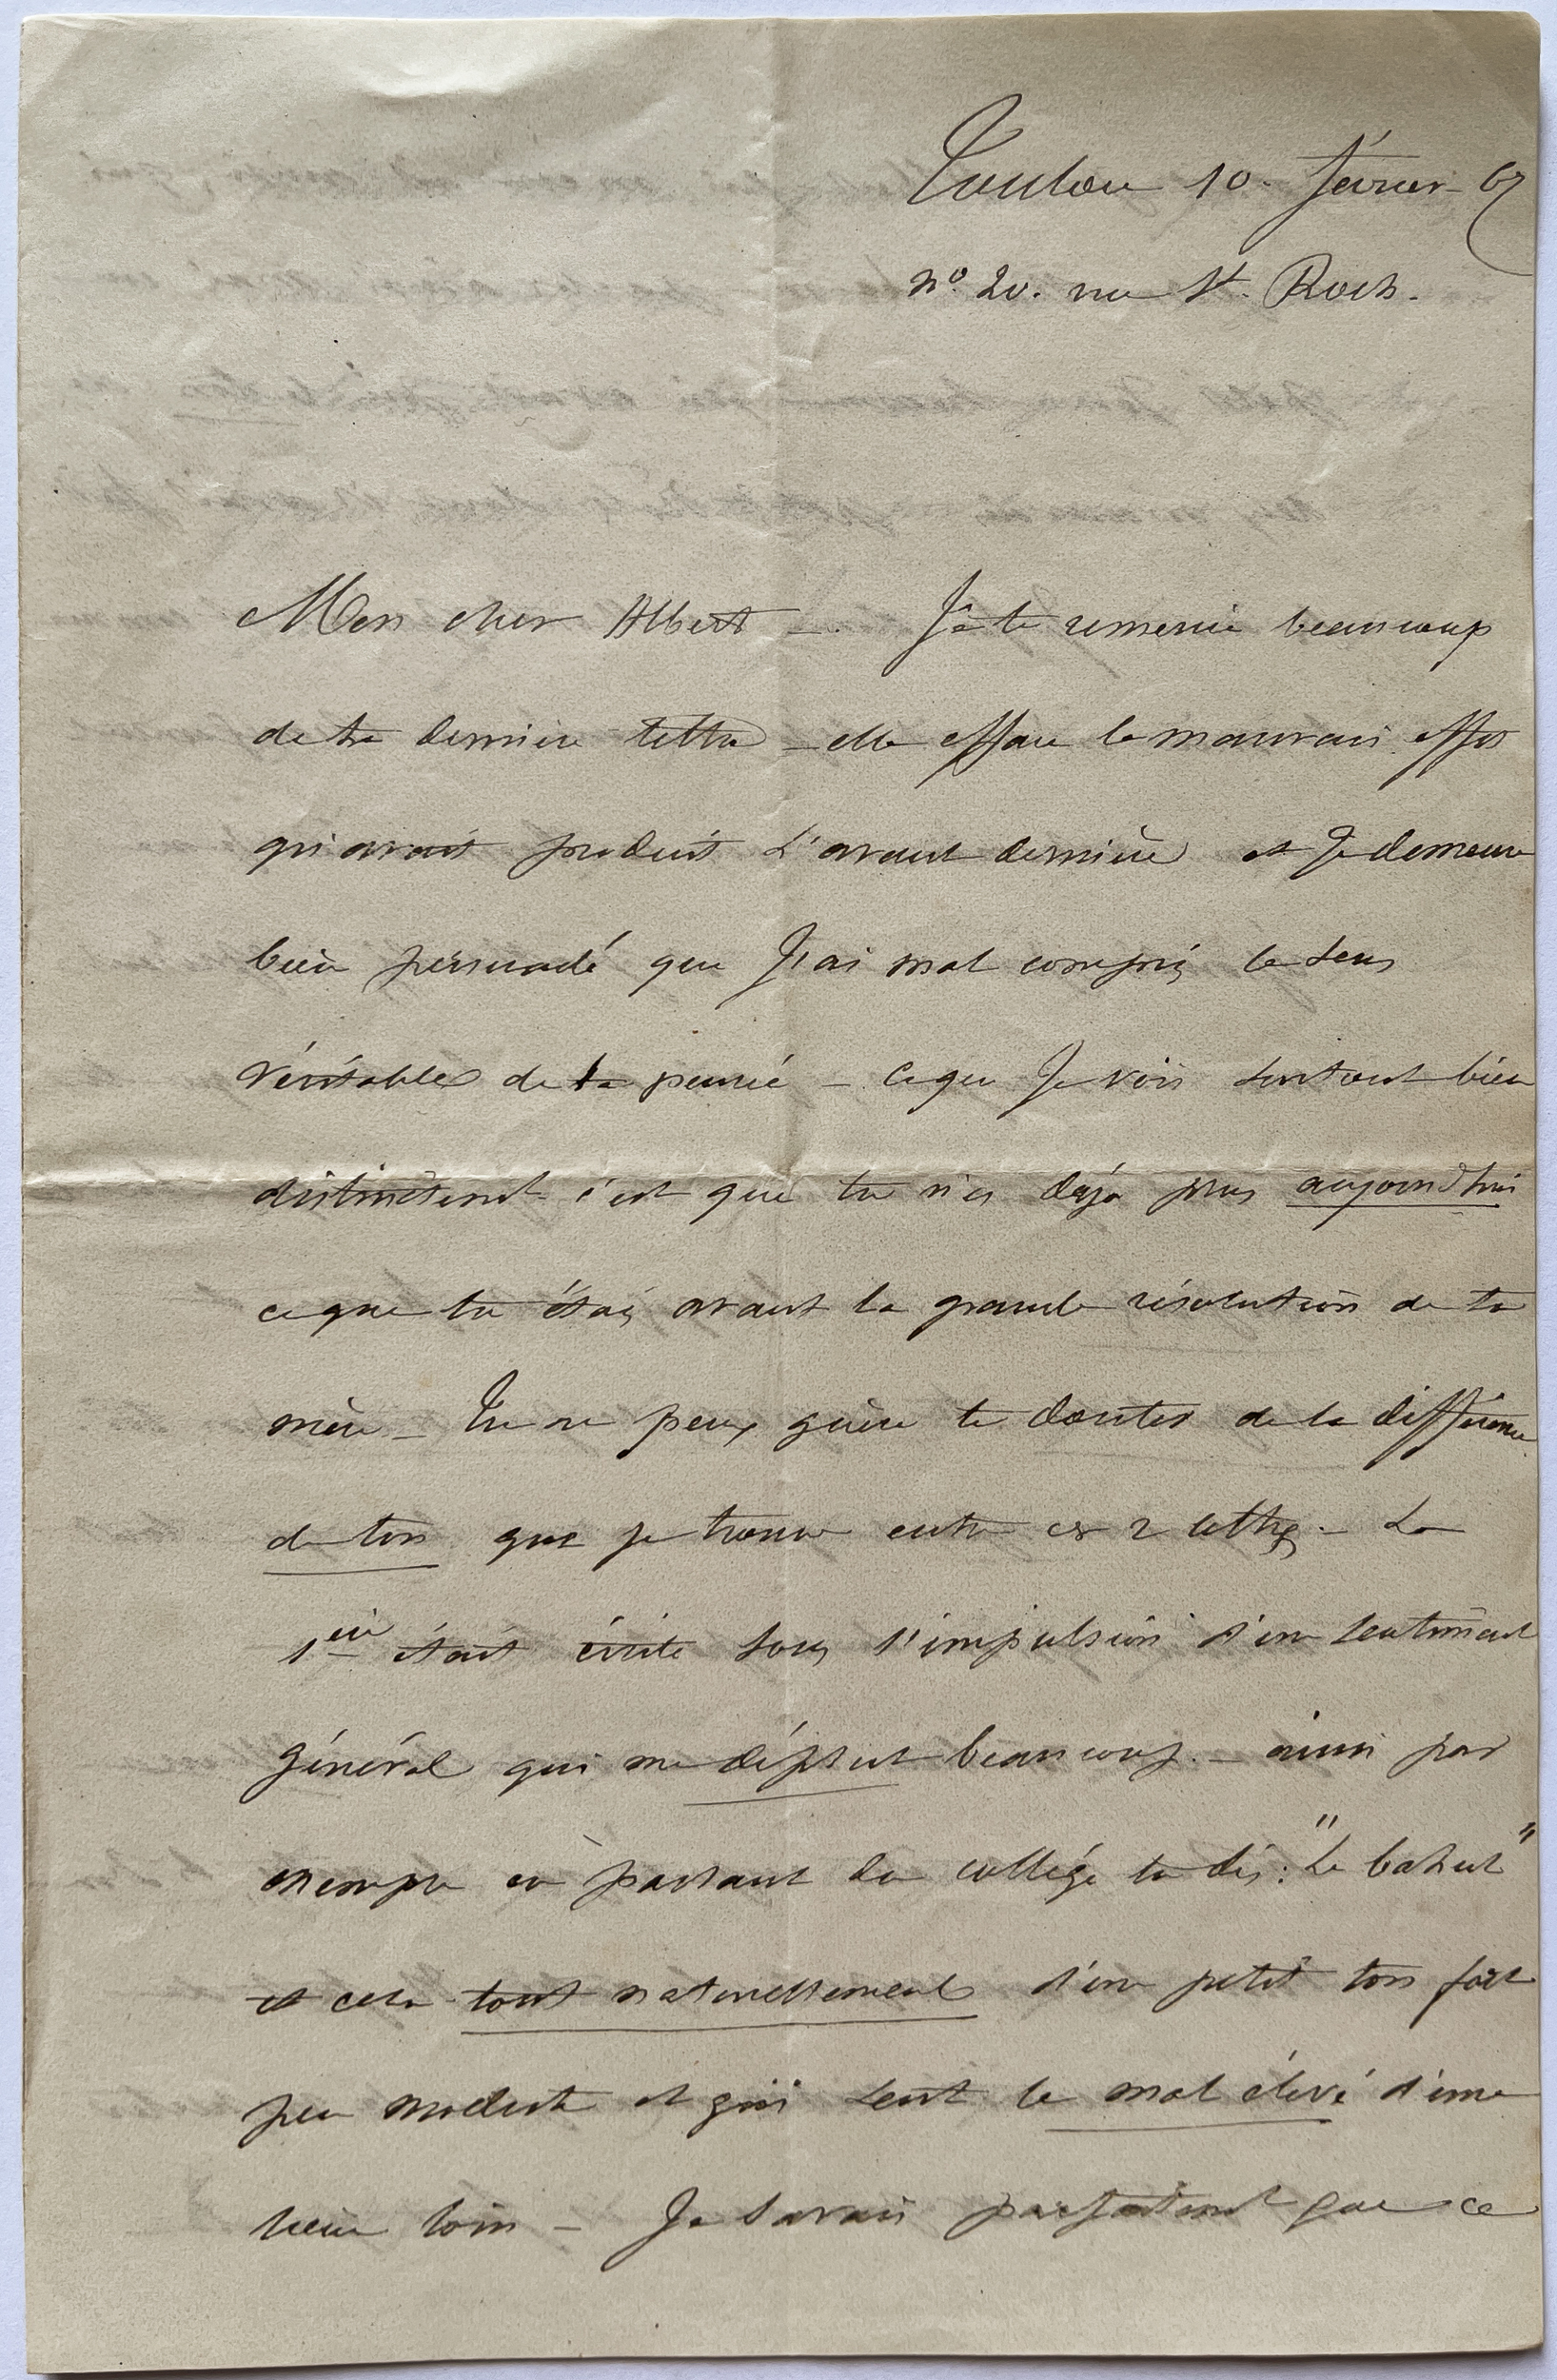 Toulon 10. février 67
n° 20. rue St. Roch.
Mon cher Albert – Je te remercie beaucoup
de ta dernière lettre – elle efface le mauvais effet
qu'avait produit l'avant dernière et Je demeure
bien persuadé que J'ai mal compris le sens
véritable de ta pensée – ce que Je vois surtout bien
distinctement c'est que tu n'es déjà plus aujourd'hui
ce que tu étais avant la grande résolution de ta
mère – Tu ne peux guère te douter de la différence
de ton que je trouve entre ces 2 lettres – La
1ère était écrite sous l'impulsion d'un sentiment
général qui me déplait beaucoup. – ainsi par
exemple en parlant du collège tu dis : "Le bahut"
et cela tout naturellement d'un petit ton fort
peu modeste et qui sent le mal élevé d'une
lieue loin – Je savais parfaitement que ce